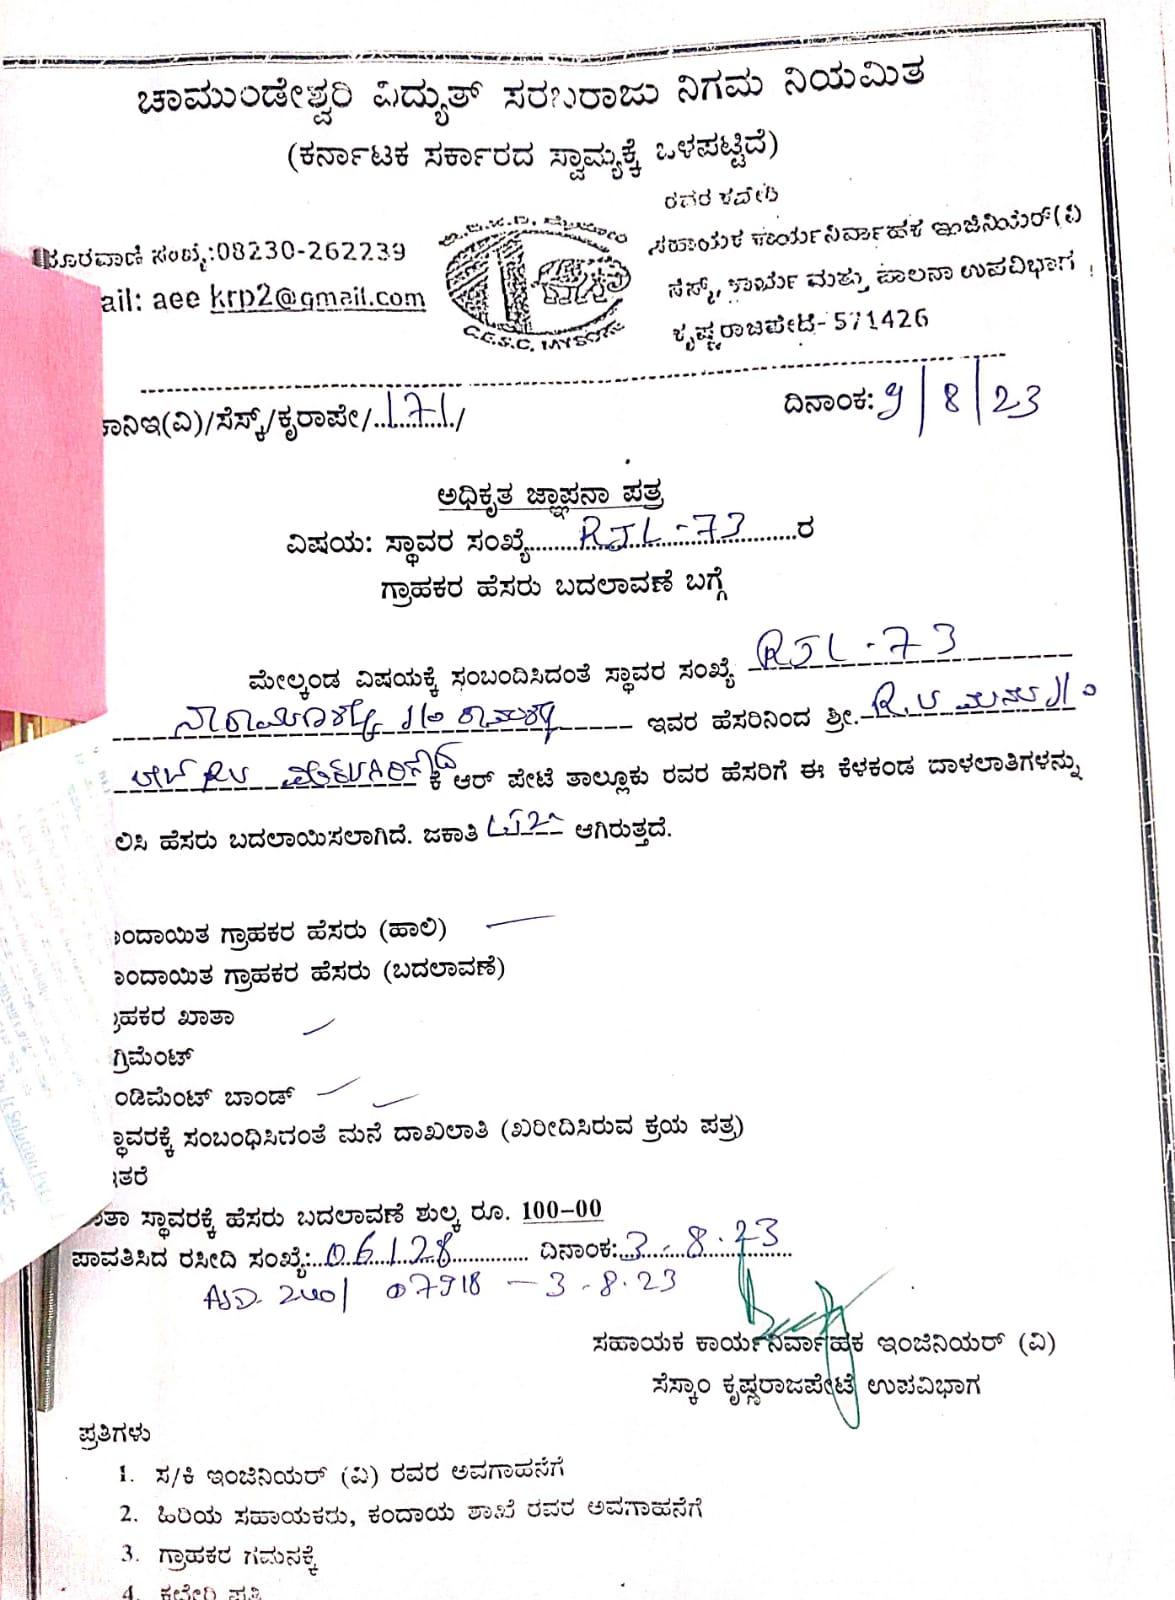 ಚಾಮುಂಡೇಶ್ವರಿ ವಿದ್ಯುತ್ ಸರಬರಾಜು ನಿಗಮ ನಿಯಮಿತ
(ಕರ್ನಾಟಕ ಸರ್ಕಾರದ ಸ್ವಾಮ್ಯಕ್ಕೆ ಒಳಪಟ್ಟಿದೆ)
ರವರ ಕಛೇರಿ
ದೂರವಾಣಿ ಸಂಖ್ಯೆ:08230-262239
ಸಹಾಯಕ ಕಾರ್ಯನಿರ್ವಾಹಕ ಇಂಜಿನಿಯರ್(ವಿ
ail: aee krp2@gmail.com
ಸೆಸ್ಕ್, ಕಾರ್ಯ ಮತ್ತು ಪಾಲನಾ ಉಪವಿಭಾಗ
ಕೃಷ್ಣರಾಜಪೇಟೆ- 571426
C.E.S.C. MYSORE
ಕಾನಿಇ(ವಿ)/ಸೆಸ್ಕ್/ಕೃರಾಪೇ/..171../
ದಿನಾಂಕ: 9/8/23
ಅಧಿಕೃತ ಜ್ಞಾಪನಾ ಪತ್ರ
ವಿಷಯ: ಸ್ಥಾವರ ಸಂಖ್ಯೆ........RJL-73........ರ
ಗ್ರಾಹಕರ ಹೆಸರು ಬದಲಾವಣೆ ಬಗ್ಗೆ
ಮೇಲ್ಕಂಡ ವಿಷಯಕ್ಕೆ ಸಂಬಂದಿಸಿದಂತೆ ಸ್ಥಾವರ ಸಂಖ್ಯೆ RJL-73
ಇವರ ಹೆಸರಿನಿಂದ ಶ್ರೀ. R.U ಮನು
ಕೆ ಆರ್ ಪೇಟೆ ತಾಲ್ಲೂಕು ರವರ ಹೆಸರಿಗೆ ಈ ಕೆಳಕಂಡ ದಾಳಲಾತಿಗಳನ್ನು
ಲಿಸಿ ಹೆಸರು ಬದಲಾಯಿಸಲಾಗಿದೆ. ಜಕಾತಿ ಆಗಿರುತ್ತದೆ.
ಂದಾಯಿತ ಗ್ರಾಹಕರ ಹೆಸರು (ಹಾಲಿ)
ಂದಾಯಿತ ಗ್ರಾಹಕರ ಹೆಸರು (ಬದಲಾವಣೆ)
ಗ್ರಾಹಕರ ಖಾತಾ
ಗ್ರಿಮೆಂಟ್
ಂಡಿಮೆಂಟ್ ಬಾಂಡ್
ಸ್ಥಾವರಕ್ಕೆ ಸಂಬಂಧಿಸಿದಂತೆ ಮನೆ ದಾಖಲಾತಿ (ಖರೀದಿಸಿರುವ ಕ್ರಯ ಪತ್ರ)
ಇತರೆ
ಖಾತಾ ಸ್ಥಾವರಕ್ಕೆ ಹೆಸರು ಬದಲಾವಣೆ ಶುಲ್ಕ ರೂ. 100-00
ಪಾವತಿಸಿದ ರಸೀದಿ ಸಂಖ್ಯೆ:..06128........... ದಿನಾಂಕ:.3..8.23
ASD 200/ 07918 — 3-8.23
ಸಹಾಯಕ ಕಾರ್ಯನಿರ್ವಾಹಕ ಇಂಜಿನಿಯರ್ (ವಿ)
ಸೆಸ್ಕಾಂ ಕೃಷ್ಣರಾಜಪೇಟೆ ಉಪವಿಭಾಗ
ಪ್ರತಿಗಳು
1. ಸ/ಕಿ ಇಂಜಿನಿಯರ್ (ವಿ) ರವರ ಅವಗಾಹನೆಗೆ
2. ಹಿರಿಯ ಸಹಾಯಕರು, ಕಂದಾಯ ಶಾಖೆ ರವರ ಅವಗಾಹನೆಗೆ
3. ಗ್ರಾಹಕರ ಗಮನಕ್ಕೆ
4. ಕಛೇರಿ ಪ್ರತಿ